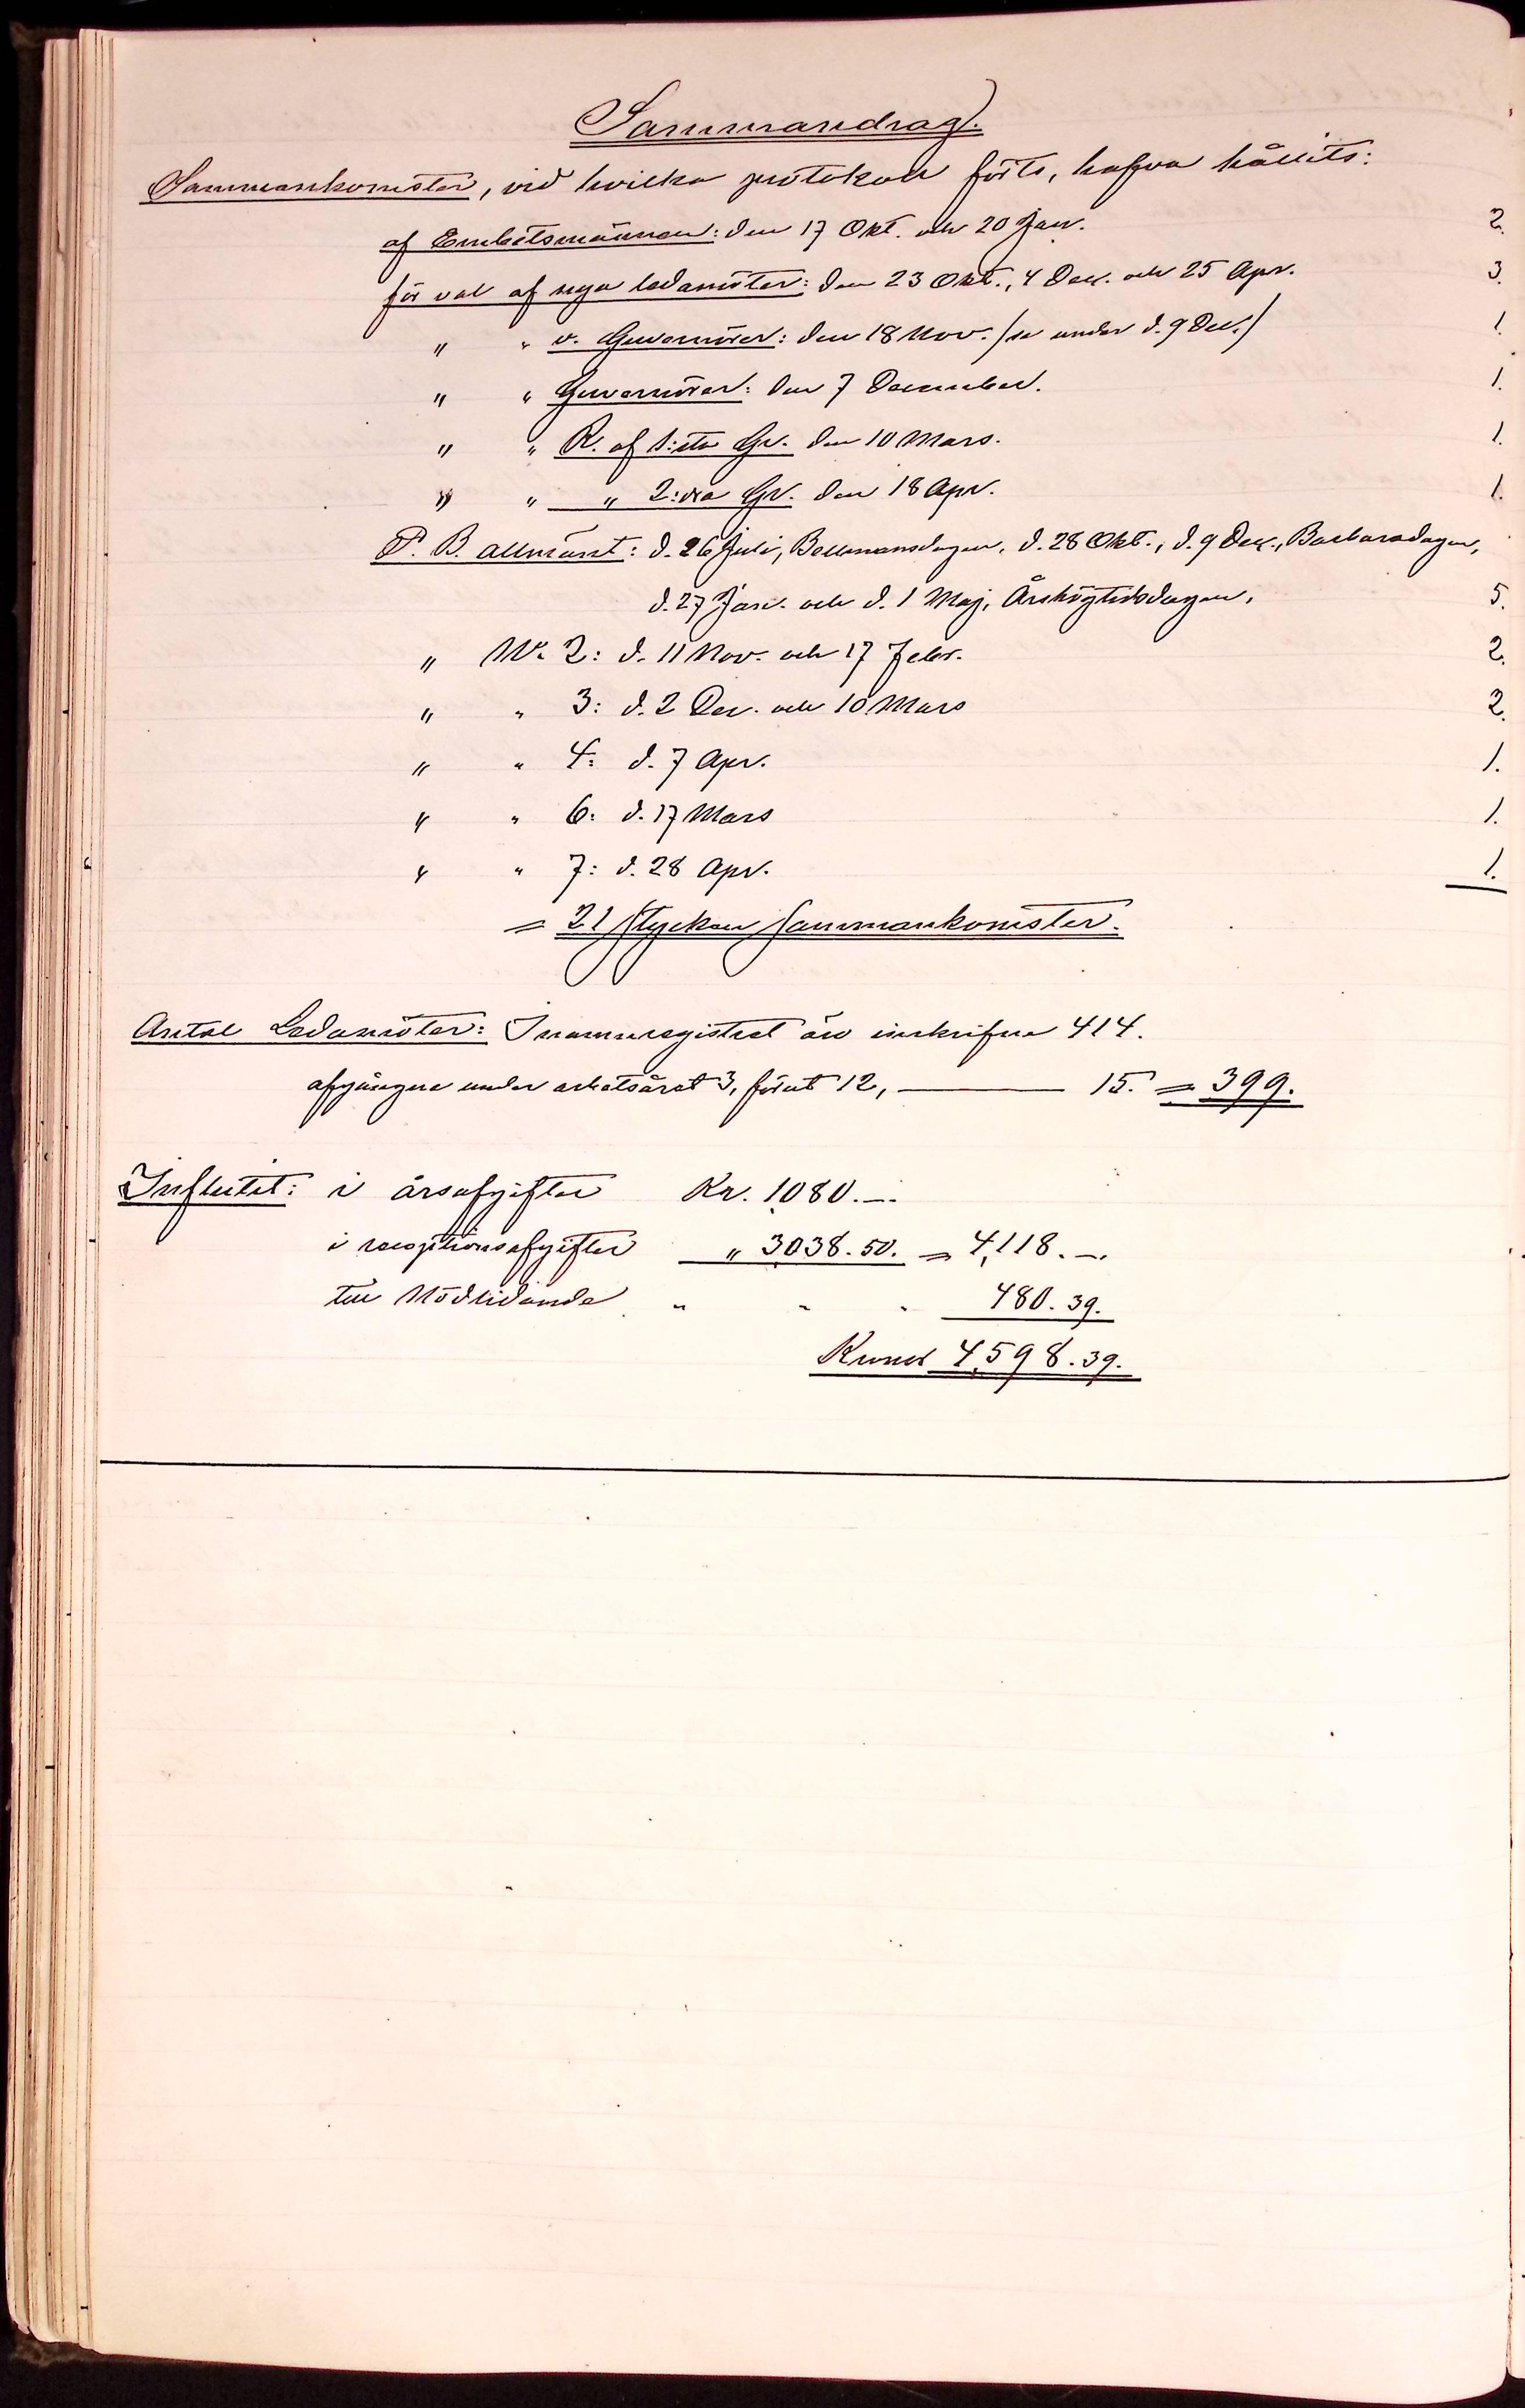 Sammandrag.
Sammankomster, vid hvilka protokoll förts, hafva hållits:
af Embetsmännen: den 17 Okt. och 20 Jan. 2.
för val af nya ledamöter: den 23 Okt., 4 Dec. och 25 Apr. 3.
" " v. Guvernörer: den 18 Nov. /se under d. 9 Dec./ 1.
" " Guvernörer: den 7 December. 1.
" " R. af 1:sta Gr. den 10 Mars. 1.
" " " 2:dra Gr. den 18 Apr. 1.
P. B. allmänt: d. 26 Juli, Bellmansdagen, d. 28 Okt., d. 9 Dec., Barbaradagen,
d. 27 Jan. och d. 1 Maj, Årshögtidsdagen, 5.
" No. 2: d. 11 Nov. och 17 Febr. 2.
" " 3: d. 2 Dec. och 10 Mars 2.
" " 4: d. 7 Apr. 1.
" " 6: d. 17 Mars 1.
" " 7: d. 28 Apr. 1.
= 21 stycken sammankomster.
Antal Ledamöter: I namnregistret äro inskrifna 414.
afgångne under arbetsåret 3, förut 12, — 15. = 399.
Influtit: i årsafgifter Kr. 1080.–.
i receptionsafgifter " 3038.50. = 4,118.–.
till Nödlidande " " " 480.39.
Kronor 4,598.39.